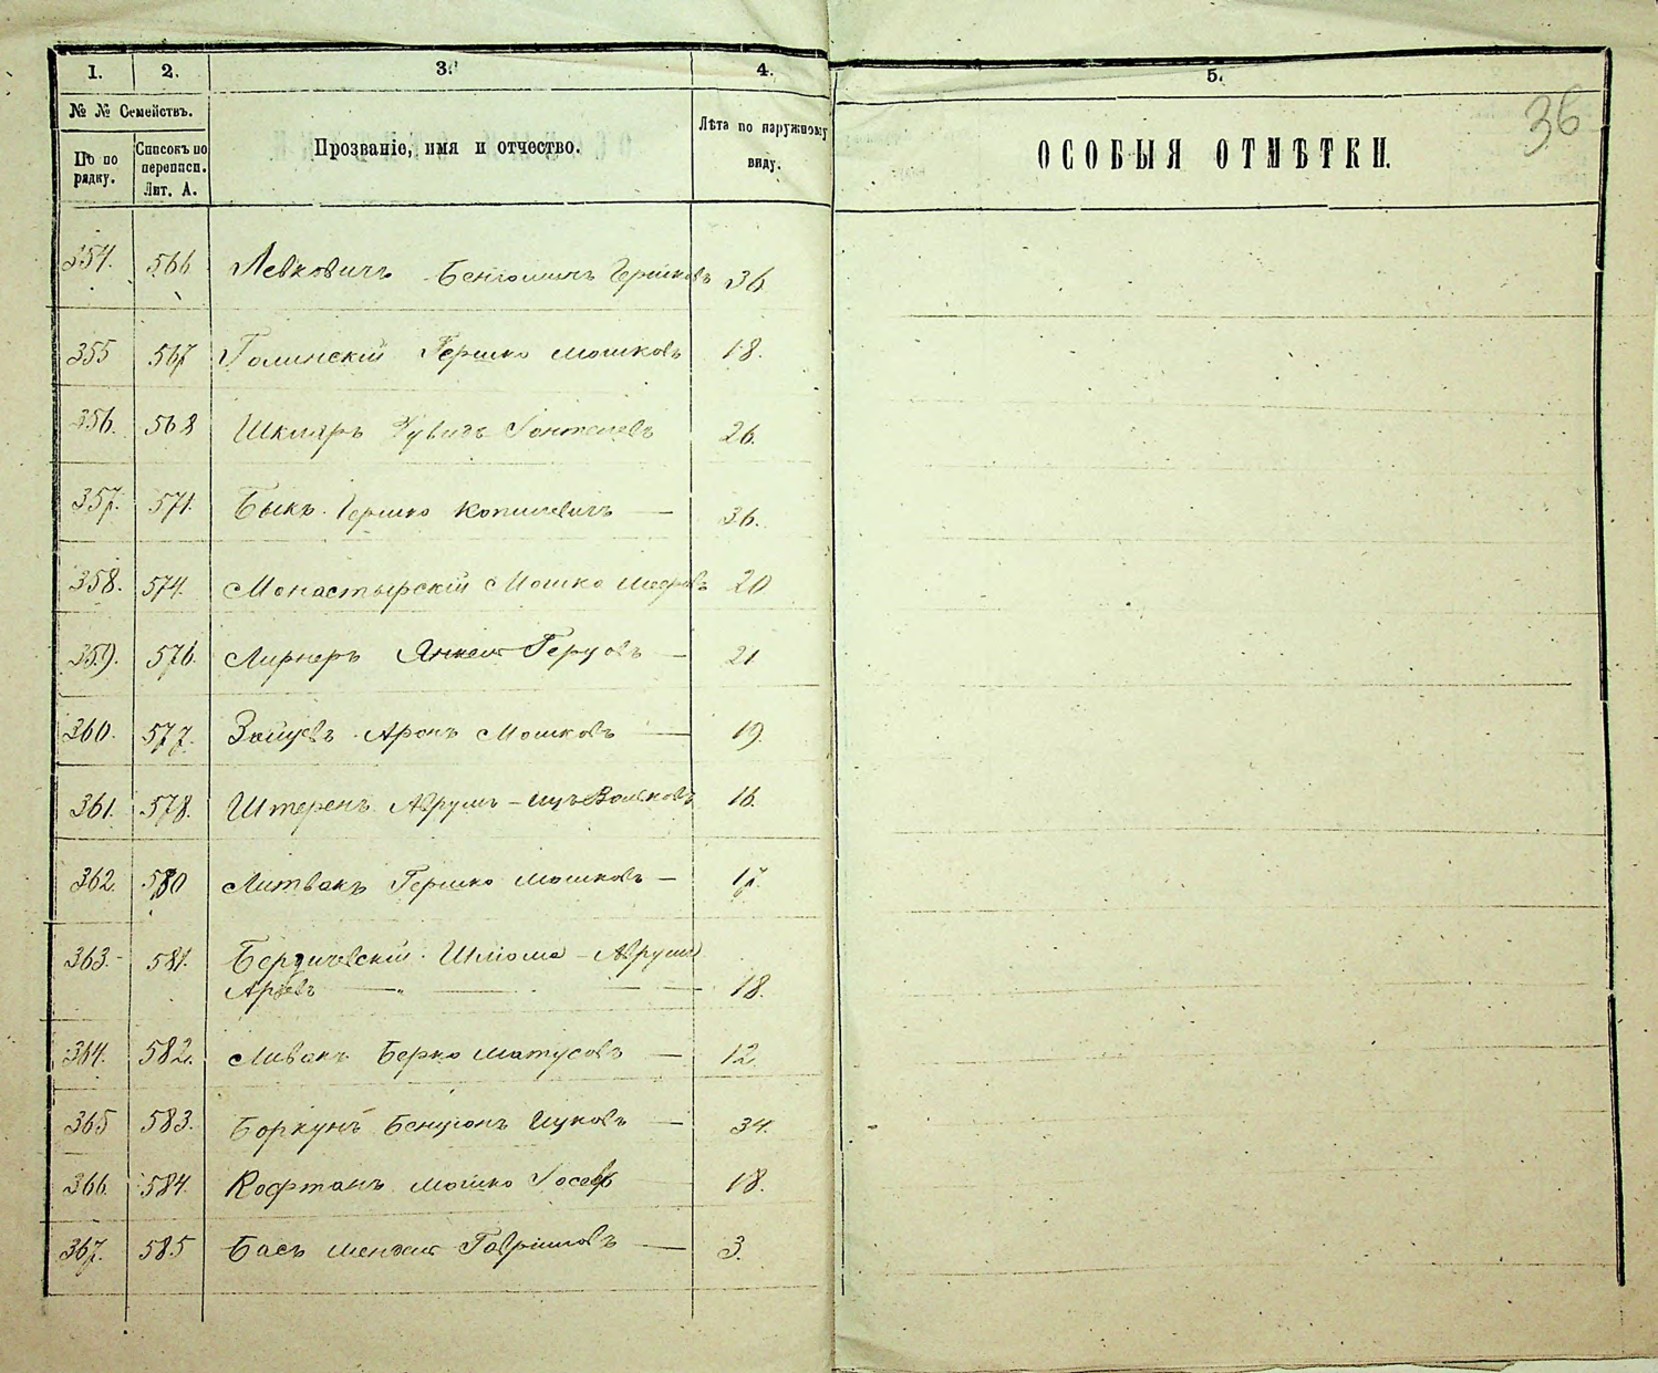 1. 2. 3. 4. 5.
36
№ № Семействъ.
По по рядку.
Списокъ по переписи. Лит. А.
Прозваніе, имя и отчество.
Лѣта по наружному виду.
ОСОБЫЯ ОТМѢТКИ.
354. 566 Левковичъ Беніоминъ Гершковъ 36
355 567 Голинскій Гершко Мошковъ 18.
356. 568 Шкляръ 26.
357. 571. Быкъ Гершко Копилевичъ — 36.
358. 574. Монастырскій Мошко 20
359. 576. Лирнеръ Янкель Герцовъ — 21
360. 577. Зайцевъ Аронъ Мошковъ — 19.
361. 578. Штеренъ Аврумъ-Ицъ Вольковъ 16.
362. 580 Литвакъ Гершко Мошковъ — 17.
363. 581. Бердичевскій Шліома-Аврумъ
Аровъ — „ — 18.
364. 582. Ливакъ Берко Матусовъ — 12.
365 583. Боркунъ Бенціонъ Ицковъ — 34.
366. 584. Кофтанъ Мошко Іосевъ 18.
367. 585 Басъ Мендель Гавріиловъ — 3.